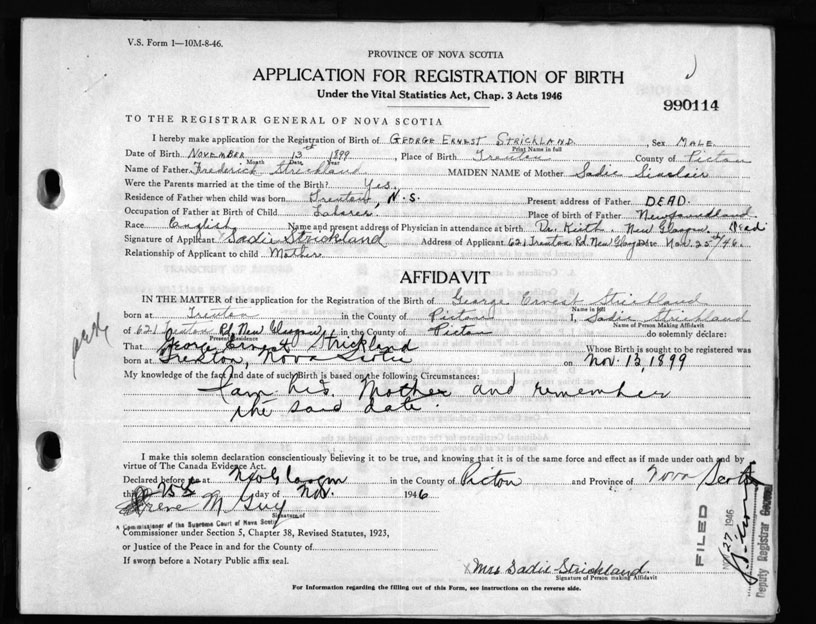 V.S. Form 1—10M-8-46.
PROVINCE OF NOVA SCOTIA
APPLICATION FOR REGISTRATION OF BIRTH
Under the Vital Statistics Act, Chap. 3 Acts 1946
990114
TO THE REGISTRAR GENERAL OF NOVA SCOTIA
I hereby make application for the Registration of Birth of GEORGE ERNEST STRICKLAND. Sex MALE.
Print Name in full
Date of Birth NOVEMBER 13th 1899, Place of Birth Trenton County of Pictou
Month Date Year
Name of Father Frederick Strickland MAIDEN NAME of Mother Sadie Sinclair
Were the Parents married at the time of the Birth? Yes.
Residence of Father when child was born Trenton, N.S. Present address of Father DEAD.
Occupation of Father at Birth of Child Laborer. Place of birth of Father Newfoundland.
Race English Name and present address of Physician in attendance at birth Dr. Keith. New Glasgow. Dead
Signature of Applicant Sadie Strickland Address of Applicant 621 Trenton Rd. New Glasgow Date Nov. 25th/46.
Relationship of Applicant to child Mother
AFFIDAVIT
IN THE MATTER of the application for the Registration of the Birth of George Ernest Strickland
Name in full
born at Trenton in the County of Pictou I, Sadie Strickland
Name of Person Making Affidavit
of 621 Trenton Rd, New Glasgow, in the County of Pictou do solemnly declare:
Present Residence
That George Ernest Strickland Whose Birth is sought to be registered was
born at Trenton, Nova Scotia on Nov. 13, 1899
My knowledge of the fact and date of such Birth is based on the following Circumstances:
I am his Mother and remember
the said date.
I make this solemn declaration conscientiously believing it to be true, and knowing that it is of the same force and effect as if made under oath and by
virtue of The Canada Evidence Act.
Declared before me at New Glasgow in the County of Pictou and Province of Nova Scotia
this 25 day of Nov. 1946
Irene M Guy
Signature of
A Commissioner of the Supreme Court of Nova Scotia
Commissioner under Section 5, Chapter 38, Revised Statutes, 1923,
or Justice of the Peace in and for the County of
If sworn before a Notary Public affix seal.
Mrs Sadie Strickland.
Signature of Person making Affidavit
For Information regarding the filling out of this Form, see instructions on the reverse side.
FILED
27 1946
Deputy Registrar General